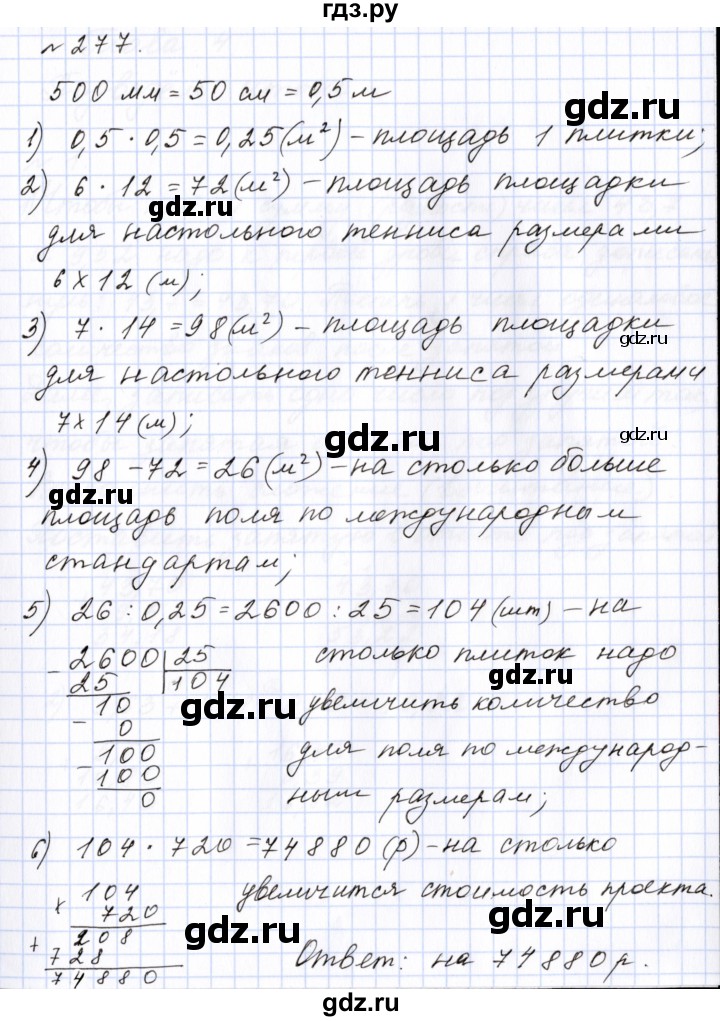 гдз.ру
№ 277.
500 мм = 50 см = 0,5 м
gdz.ru
1) 0,5 · 0,5 = 0,25 (м²) – площадь 1 плитки;
2) 6 · 12 = 72 (м²) – площадь площадки
gdz.ru
gdz.ru
для настольного тенниса размерами
6 × 12 (м);
gdz.ru
3) 7 · 14 = 98 (м²) – площадь площадки
gdz.ru
для настольного тенниса размерами
7 × 14 (м);
gdz.ru
4) 98 – 72 = 26 (м²) – на столько больше
gdz.ru
площадь поля по международным
стандартам;
gdz.ru
5) 26 : 0,25 = 2600 : 25 = 104 (шт) – на
– 2600 | 25 столько плиток надо
25 104
gdz.ru
gdz.ru
– 10 увеличить количество
0
– 100 для поля по международ-
gdz.ru
100
0 ным размерам;
gdz.ru
6) 104 · 720 = 74880 (р) – на столько
× 104 увеличится стоимость проекта.
720
gdz.ru
+ 208
gdz.ru
728
74880 Ответ: на 74880 р.
gdz.ru
гдз.ру